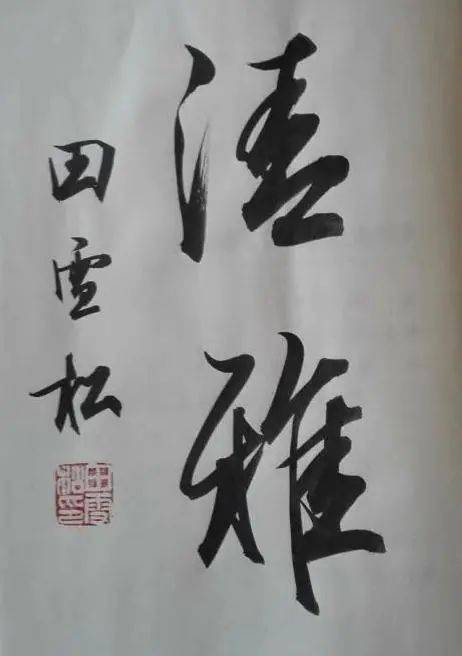 清雅
田雪松